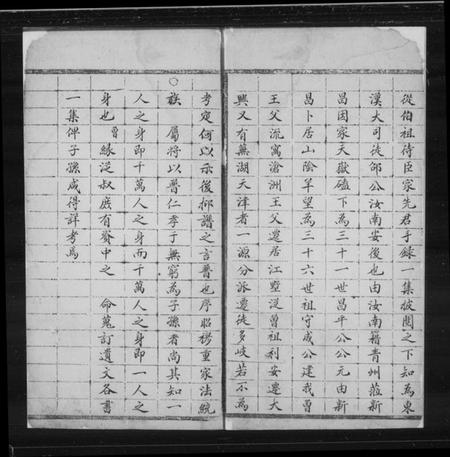 從伯祖侍臣家先君手錄一集披閱之下知為東
漢大司徒邵公汝南安後也由汝南籍青州蒞新
昌因家天嶽磕下為三十一世昌平公公元由新
昌卜居山陰單望為三十六世祖守成公建我曾
王父流寓滄洲王父遷居江墅從曾祖利安遷大
興又有蕪湖天津者一源分派遷徙多岐若不為
考定何以示後抑譜之言普也序昭穆重家法統
族屬將以普仁孝于無窮為子孫者尚其知一
人之身即千萬人之身而千萬人之身即一人之
身也曾緣從叔展有賚中之命蒐訂遺文各書
一集俾子孫咸得詳考焉